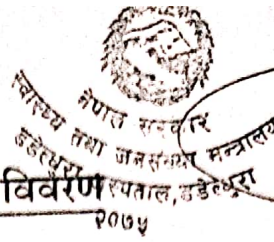 नेपाल सरकार
स्वास्थ्य तथा जनसंख्या मन्त्रालय
डडेल्धुरा
विवरण
स्पताल, डडेल्धुरा
२०७५